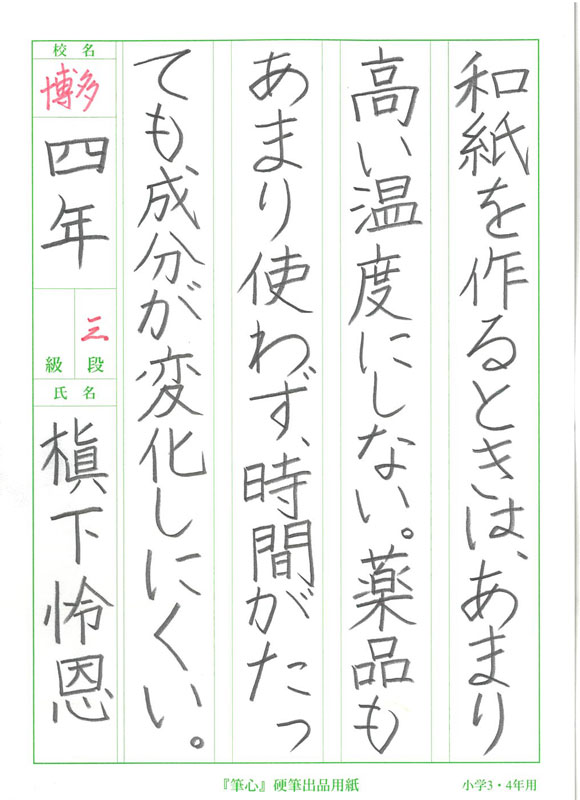 和紙を作るときは、あまり
高い温度にしない。薬品も
あまり使わず、時間がたっ
ても成分が変化しにくい。
校名
博多
四年
三段
級
氏名
槇下怜恩
『筆心』硬筆出品用紙
小学3・4年用